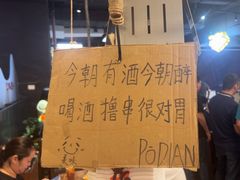 今朝有酒今朝醉
喝酒撸串很对胃
PŌDIAN